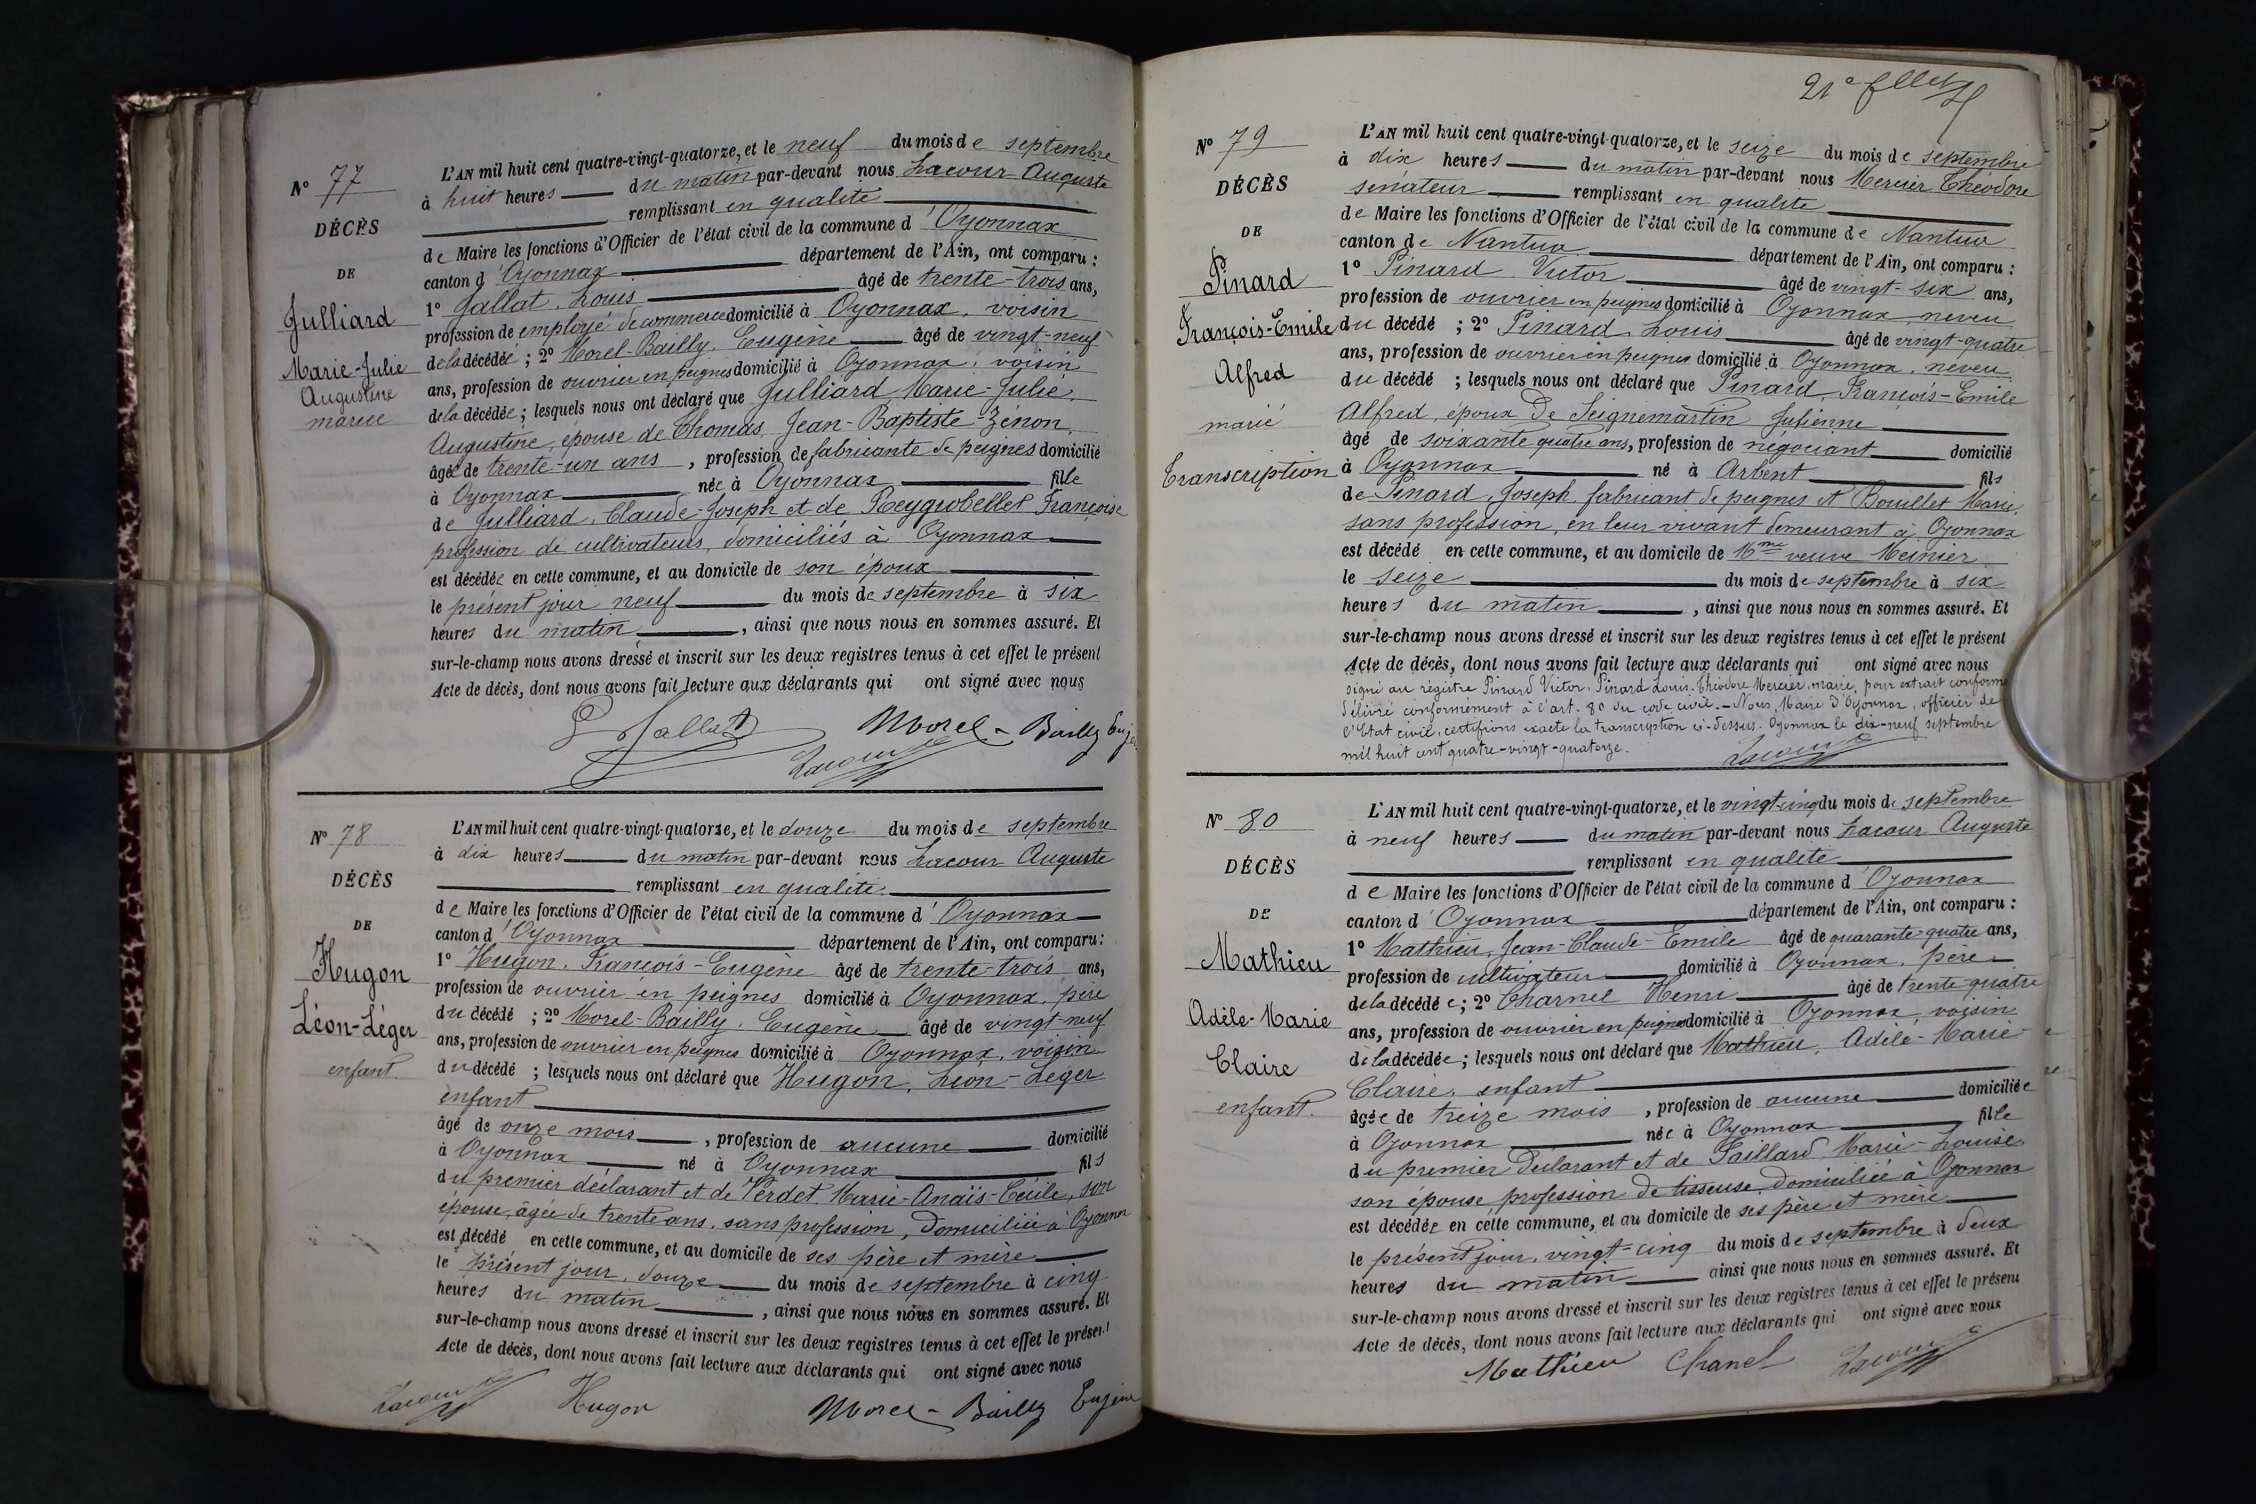 N° 77
DÉCÈS
DE
Julliard
Marie-Julie
Augustine
mariée
L'AN mil huit cent quatre-vingt-quatorze, et le neuf du mois de septembre
à huit heures du matin par-devant nous Lacour Auguste
remplissant en qualité
de Maire les fonctions d'Officier de l'état civil de la commune d'Oyonnax
canton d'Oyonnax département de l'Ain, ont comparu :
1° Jallat, Louis âgé de trente-trois ans,
profession de employé de commerce domicilié à Oyonnax, voisin
de la décédée ; 2° Morel-Bailly, Eugène âgé de vingt-neuf
ans, profession de ouvrier en peignes domicilié à Oyonnax, voisin
de la décédée ; lesquels nous ont déclaré que Julliard, Marie-Julie,
Augustine, épouse de Thomas, Jean-Baptiste-Zénon,
âgée de trente-un ans, profession de fabricante de peignes domicilié
à Oyonnax née à Oyonnax fille
de Julliard, Claude-Joseph et de Reygrobellet Françoise
profession de cultivateurs, domiciliés à Oyonnax
est décédée en cette commune, et au domicile de son époux
le présent jour neuf du mois de septembre à six
heures du matin, ainsi que nous nous en sommes assuré. Et
sur-le-champ nous avons dressé et inscrit sur les deux registres tenus à cet effet le présent
Acte de décès, dont nous avons fait lecture aux déclarants qui ont signé avec nous
Jallat Morel-Bailly Eugè
Lacour
N° 78
DÉCÈS
DE
Hugon
Léon-Léger
enfant.
L'AN mil huit cent quatre-vingt-quatorze, et le douze du mois de septembre
à dix heures du matin par-devant nous Lacour Auguste
remplissant en qualité
de Maire les fonctions d'Officier de l'état civil de la commune d'Oyonnax
canton d'Oyonnax département de l'Ain, ont comparu :
1° Hugon, François-Eugène âgé de trente-trois ans,
profession de ouvrier en peignes domicilié à Oyonnax, père
du décédé ; 2° Morel-Bailly, Eugène âgé de vingt-neuf
ans, profession de ouvrier en peignes domicilié à Oyonnax, voisin
du décédé ; lesquels nous ont déclaré que Hugon, Léon-Léger
enfant
âgé de onze mois, profession de aucune domicilié
à Oyonnax né à Oyonnax fils
du premier déclarant et de Verdet Marie-Anaïs-Cécile, son
épouse, âgée de trente ans, sans profession, domiciliée à Oyonnax
est décédé en cette commune, et au domicile de ses père et mère
le présent jour, douze du mois de septembre à cinq
heures du matin, ainsi que nous nous en sommes assuré. Et
sur-le-champ nous avons dressé et inscrit sur les deux registres tenus à cet effet le présent
Acte de décès, dont nous avons fait lecture aux déclarants qui ont signé avec nous
Lacour Hugon Morel-Bailly Eugène
21e fllet
N° 79
DÉCÈS
DE
Pinard
François-Emile
Alfred
marié
Transcription
L'AN mil huit cent quatre-vingt-quatorze, et le seize du mois de septembre
à dix heures du matin par-devant nous Mercier Théodore
sénateur remplissant en qualité
de Maire les fonctions d'Officier de l'état civil de la commune de Nantua
canton de Nantua département de l'Ain, ont comparu :
1° Pinard Victor âgé de vingt-six ans,
profession de ouvrier en peignes domicilié à Oyonnax, neveu
du décédé ; 2° Pinard Louis âgé de vingt-quatre
ans, profession de ouvrier en peignes domicilié à Oyonnax, neveu
du décédé ; lesquels nous ont déclaré que Pinard, François-Emile
Alfred, époux de Seignemartin Julienne
âgé de soixante quatre ans, profession de négociant domicilié
à Oyonnax né à Arbent fils
de Pinard, Joseph, fabricant de peignes et Bouillet Marie,
sans profession, en leur vivant demeurant à Oyonnax
est décédé en cette commune, et au domicile de Mme veuve Meunier
le seize du mois de septembre à six
heures du matin, ainsi que nous nous en sommes assuré. Et
sur-le-champ nous avons dressé et inscrit sur les deux registres tenus à cet effet le présent
Acte de décès, dont nous avons fait lecture aux déclarants qui ont signé avec nous
signé au registre Pinard Victor, Pinard Louis, Théodore Mercier, maire, pour extrait conforme
délivré conformément à l'art. 80 du code civil. - Nous, Maire d'Oyonnax, officier de
l'Etat civil, certifions exacte la transcription ci-dessus. Oyonnax le dix-neuf septembre
mil huit cent quatre-vingt-quatorze.
Lacour
N° 80
DÉCÈS
DE
Mathieu
Adèle-Marie
Claire
enfant.
L'AN mil huit cent quatre-vingt-quatorze, et le vingt-cinq du mois de septembre
à neuf heures du matin par-devant nous Lacour Auguste
remplissant en qualité
de Maire les fonctions d'Officier de l'état civil de la commune d'Oyonnax
canton d'Oyonnax département de l'Ain, ont comparu :
1° Mathieu, Jean-Claude-Emile âgé de quarante-quatre ans,
profession de cultivateur domicilié à Oyonnax, père
de la décédée ; 2° Charnel Henri âgé de trente-quatre
ans, profession de ouvrier en peignes domicilié à Oyonnax, voisin
de la décédée ; lesquels nous ont déclaré que Mathieu, Adèle-Marie
Claire, enfant
âgée de treize mois, profession de aucune domiciliée
à Oyonnax née à Oyonnax fille
du premier déclarant et de Saillard Marie-Louise
son épouse, profession de tisseuse, domiciliée à Oyonnax
est décédée en cette commune, et au domicile de ses père et mère
le présent jour, vingt-cinq du mois de septembre à deux
heures du matin ainsi que nous nous en sommes assuré. Et
sur-le-champ nous avons dressé et inscrit sur les deux registres tenus à cet effet le présent
Acte de décès, dont nous avons fait lecture aux déclarants qui ont signé avec nous
Mathieu Chanel Lacour